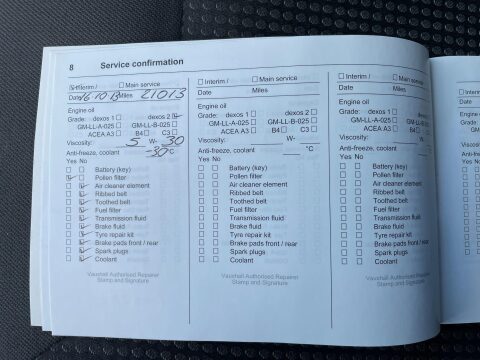 8 Service confirmation
Interim / Main service
Date 16-10-13 Miles 21013
Engine oil
Grade: dexos 1 dexos 2
GM-LL-A-025 GM-LL-B-025
ACEA A3 B4 C3
Viscosity: 5 W- 30
Anti-freeze, coolant -30 °C
Yes No
Battery (key)
Pollen filter
Air cleaner element
Ribbed belt
Toothed belt
Fuel filter
Transmission fluid
Brake fluid
Tyre repair kit
Brake pads front / rear
Spark plugs
Coolant
Vauxhall Authorised Repairer
Stamp and Signature
Interim / Main service
Date Miles
Engine oil
Grade: dexos 1 dexos 2
GM-LL-A-025 GM-LL-B-025
ACEA A3 B4 C3
Viscosity: W-
Anti-freeze, coolant °C
Yes No
Battery (key)
Pollen filter
Air cleaner element
Ribbed belt
Toothed belt
Fuel filter
Transmission fluid
Brake fluid
Tyre repair kit
Brake pads front / rear
Spark plugs
Coolant
Vauxhall Authorised Repairer
Stamp and Signature
Interim / Main service
Date Miles
Engine oil
Grade: dexos 1 dexos 2
GM-LL-A-025 GM-LL-B-025
ACEA A3 B4 C3
Viscosity: W-
Anti-freeze, coolant °C
Yes No
Battery (key)
Pollen filter
Air cleaner element
Ribbed belt
Toothed belt
Fuel filter
Transmission fluid
Brake fluid
Tyre repair kit
Brake pads front / rear
Spark plugs
Coolant
Vauxhall Authorised Repairer
Stamp and Signature
Date
Engine oil
Grade:
Yes No